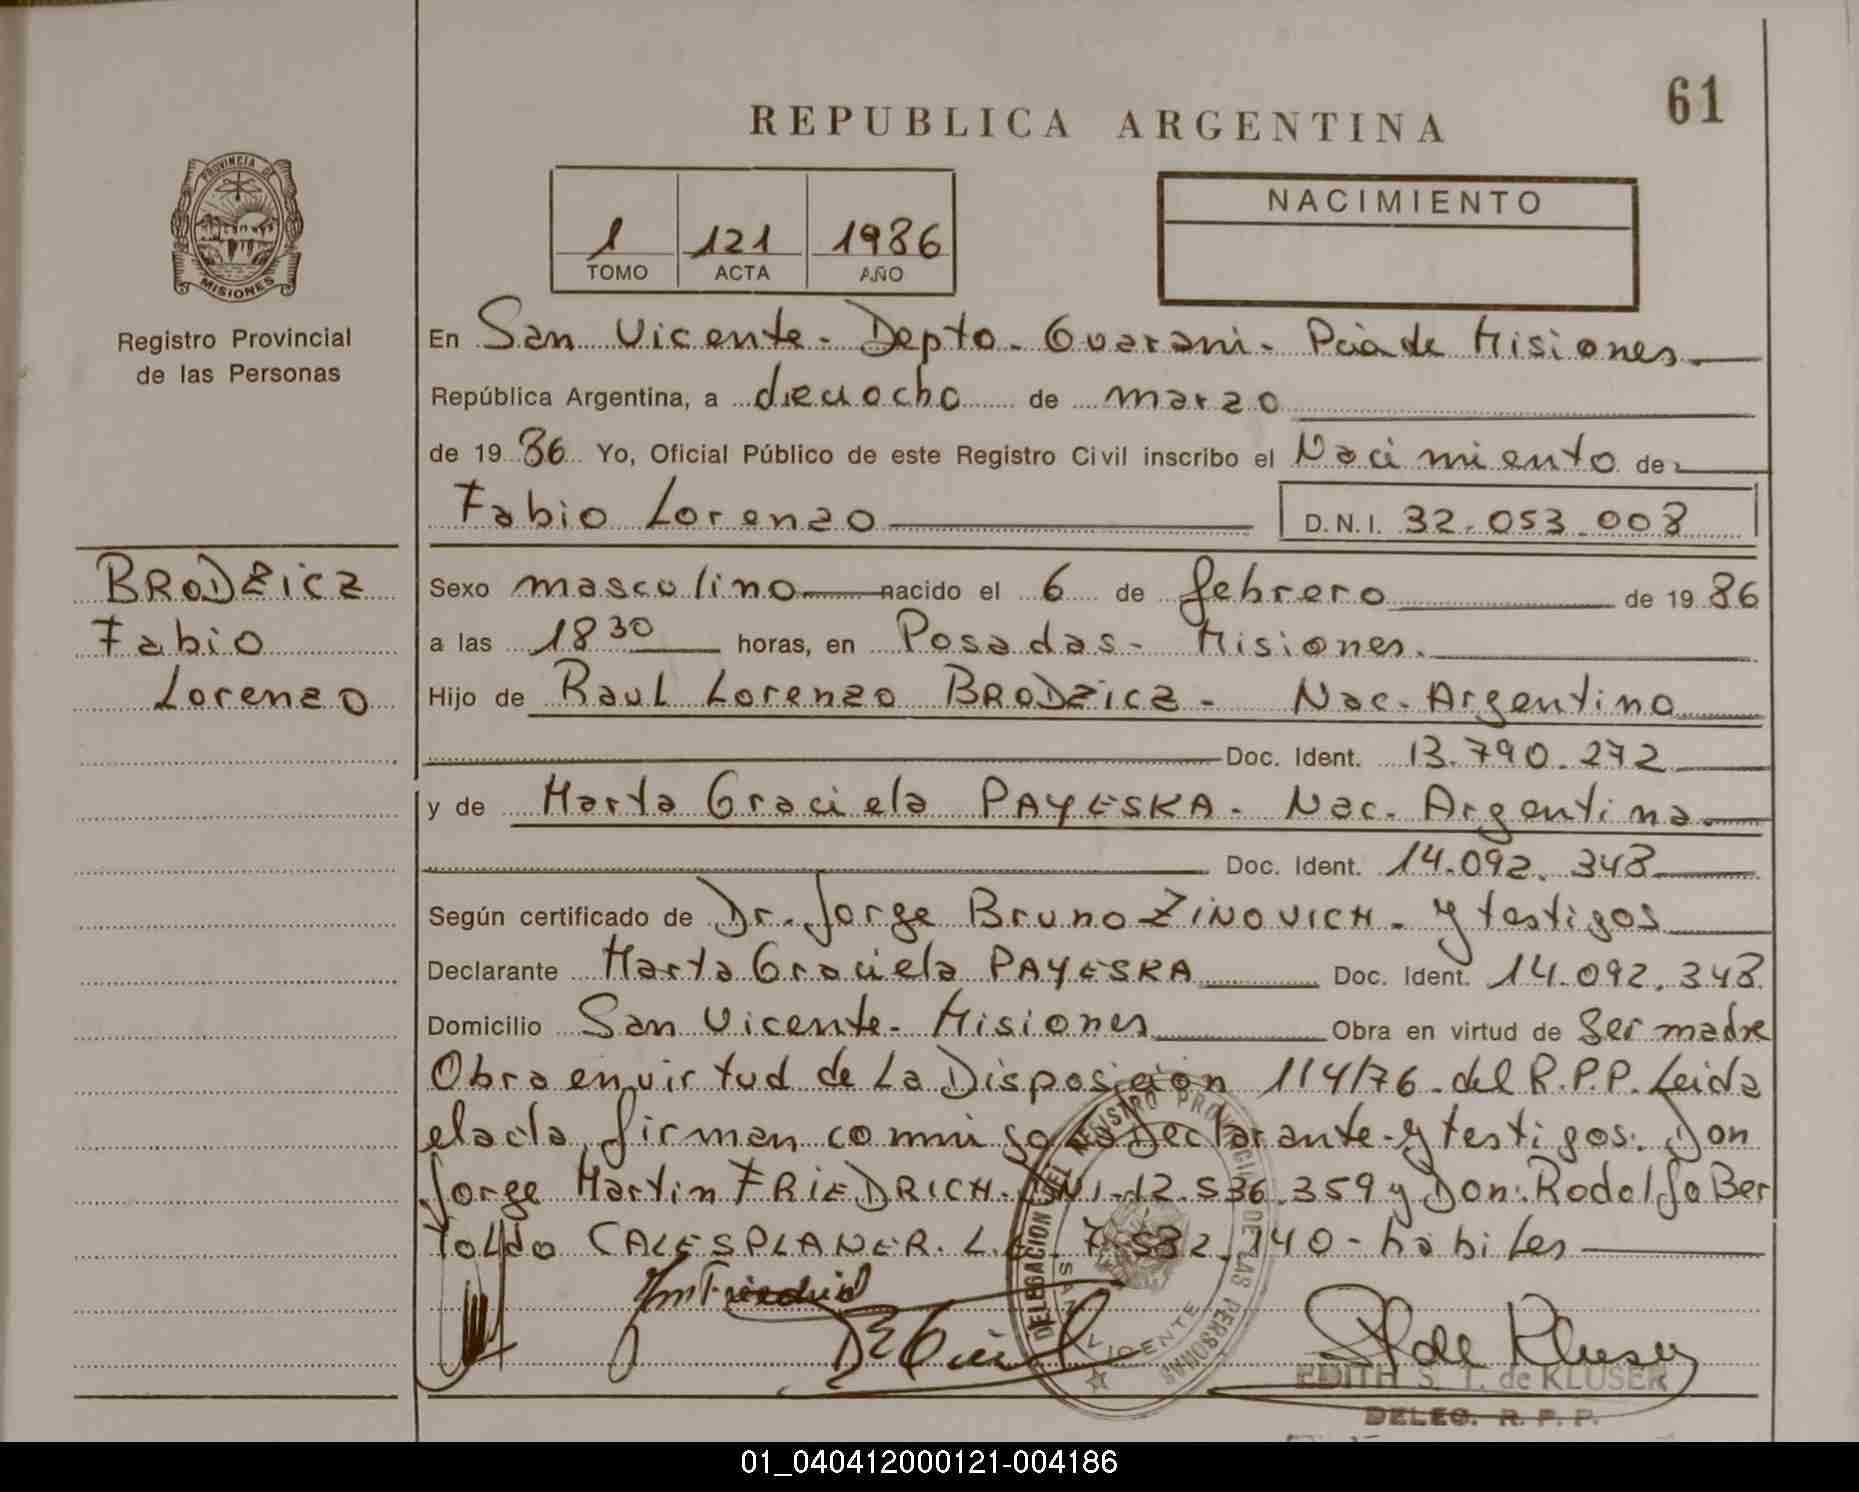 61
REPUBLICA ARGENTINA
PROVINCIA DE
MISIONES
1 121 1986
TOMO ACTA AÑO
NACIMIENTO
Registro Provincial
de las Personas
En San Vicente - Depto - Guarani - Pcia de Misiones
República Argentina, a dieciocho de marzo
de 1986 Yo, Oficial Público de este Registro Civil inscribo el Nacimiento de
Fabio Lorenzo D.N.I. 32.053.008
BRODZICZ
Fabio
Lorenzo
Sexo masculino nacido el 6 de febrero de 1986
a las 18 30 horas, en Posadas - Misiones.
Hijo de Raul Lorenzo BRODZICZ - Nac. Argentino
Doc. Ident. 13.790.272
y de Marta Graciela PAYESKA - Nac. Argentina
Doc. Ident. 14.092.348
Según certificado de Dr. Jorge Bruno ZINOVICH - y testigos
Declarante Marta Graciela PAYESKA Doc. Ident. 14.092.348
Domicilio San Vicente - Misiones Obra en virtud de Ser madre
Obra en virtud de La Disposición 114/76 del R.P.P. Leida
el acta firman conmigo la Declarante y testigos: Don
Jorge Martin FRIEDRICH. DNI-12.536.359 y Don: Rodolfo Ber
toldo CALESPLANER. L.E. 7.532.140 - habiles
DELEGACION DEL REGISTRO PROVINCIAL DE LAS PERSONAS
SAN VICENTE
EDITH S. T. de KLUSER
DELEG. R. P. P.
01_040412000121-004186